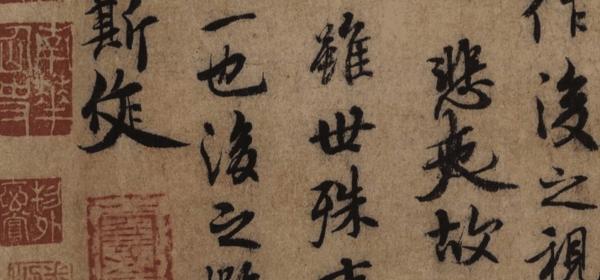 作後之視
悲夫故
雖世殊
一也後之
斯文